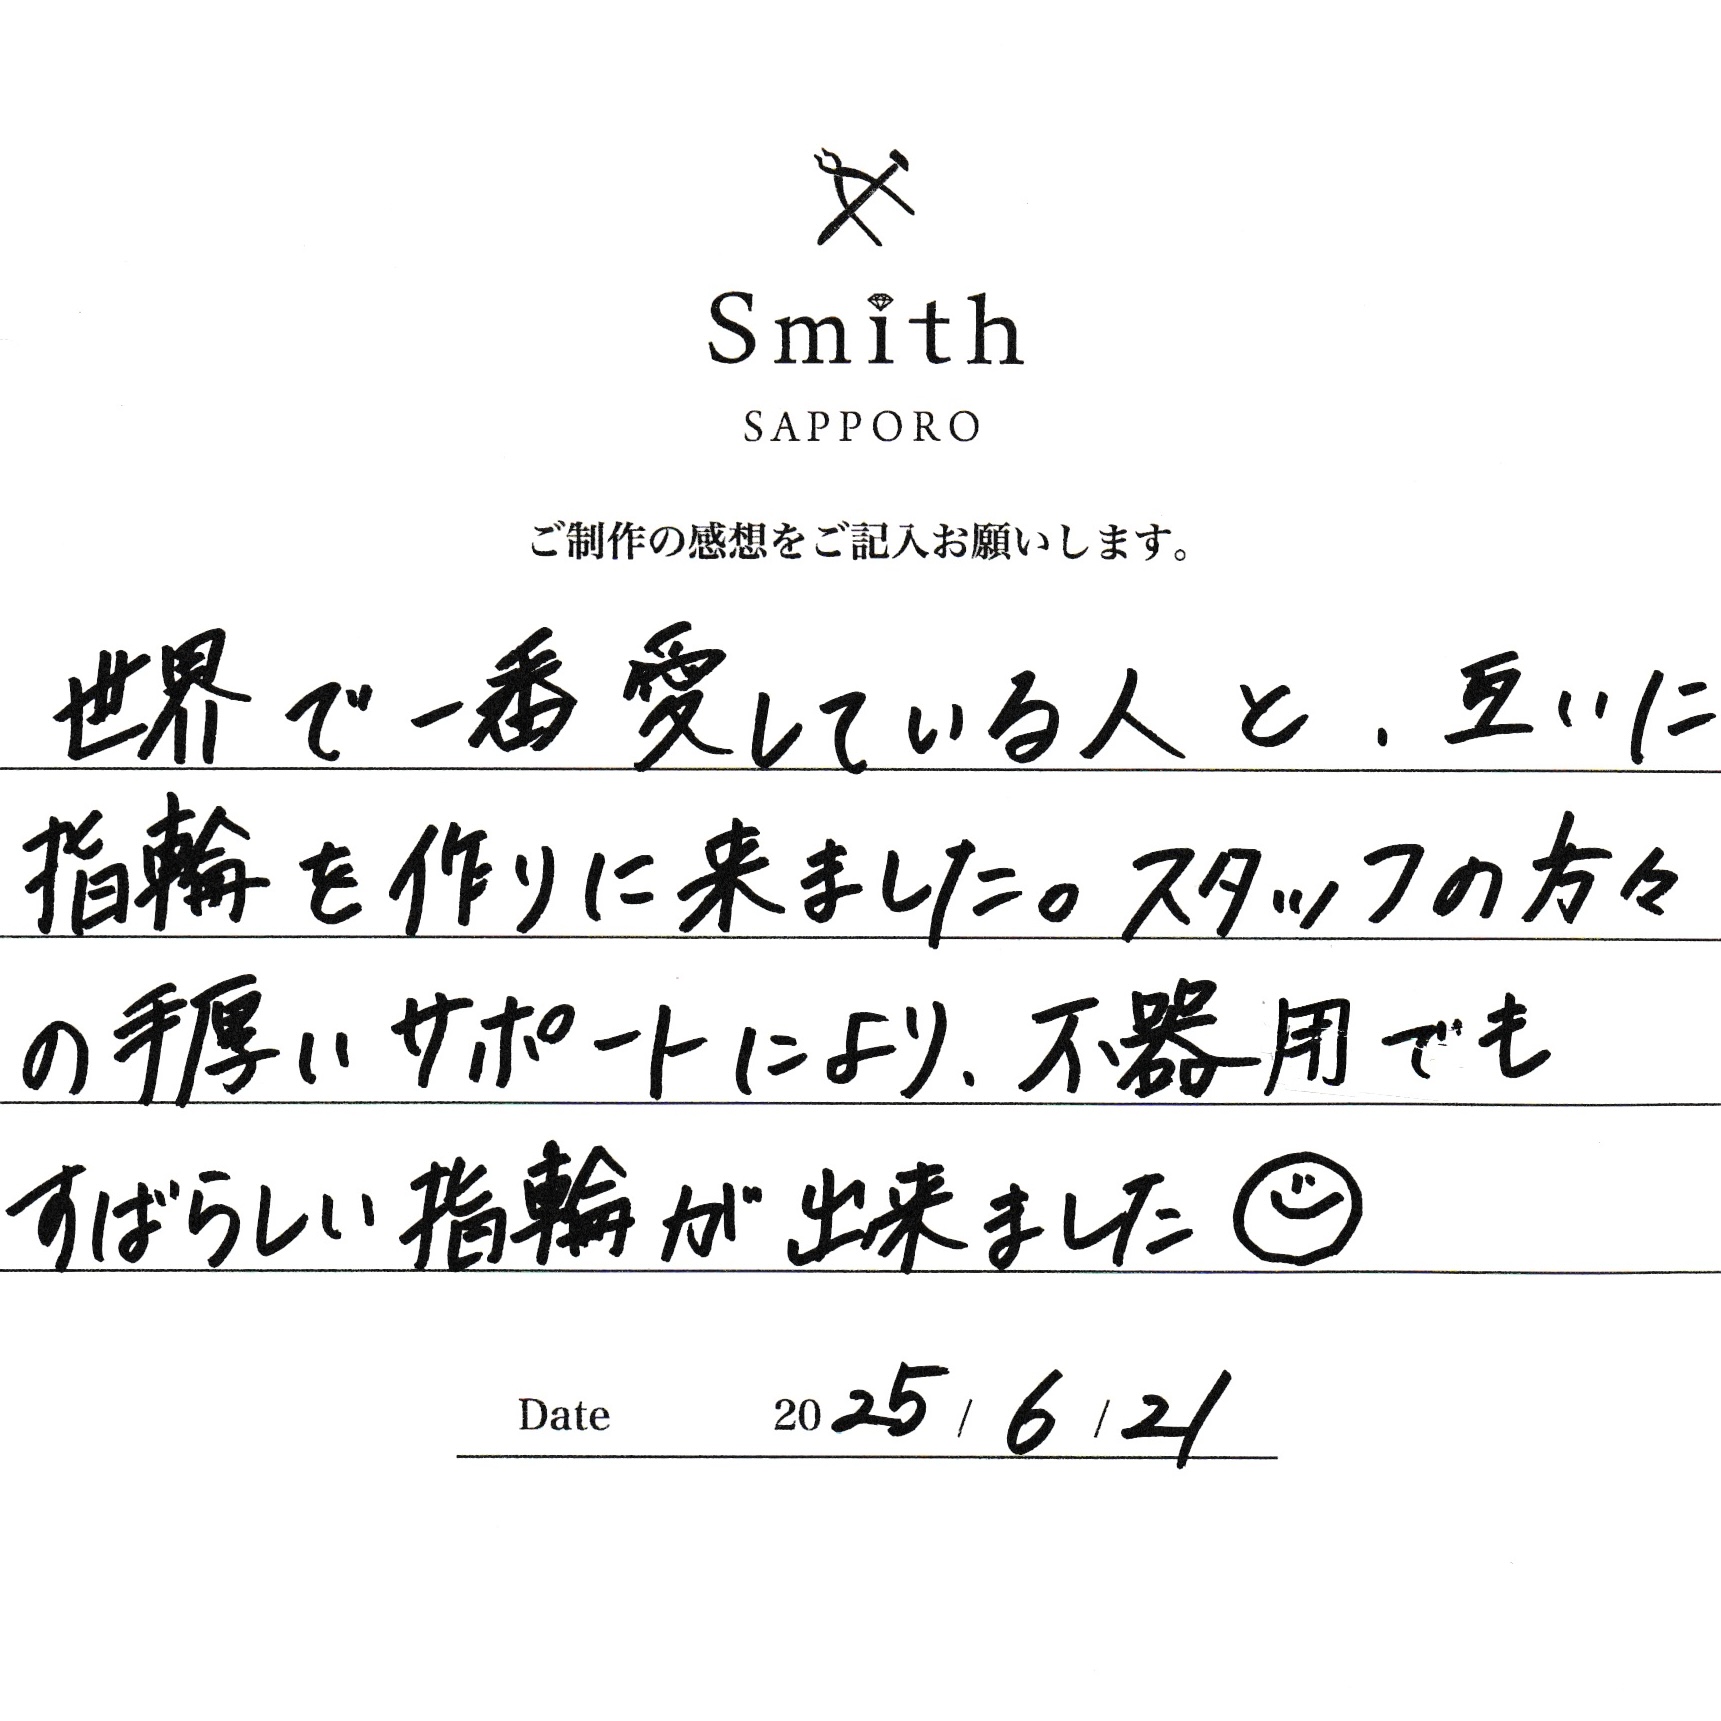 Smith
SAPPORO
ご制作の感想をご記入お願いします。
世界で一番愛している人と、互いに
指輪を作りに来ました。スタッフの方々
の手厚いサポートにより、不器用でも
すばらしい指輪が出来ました
Date 2025/6/21